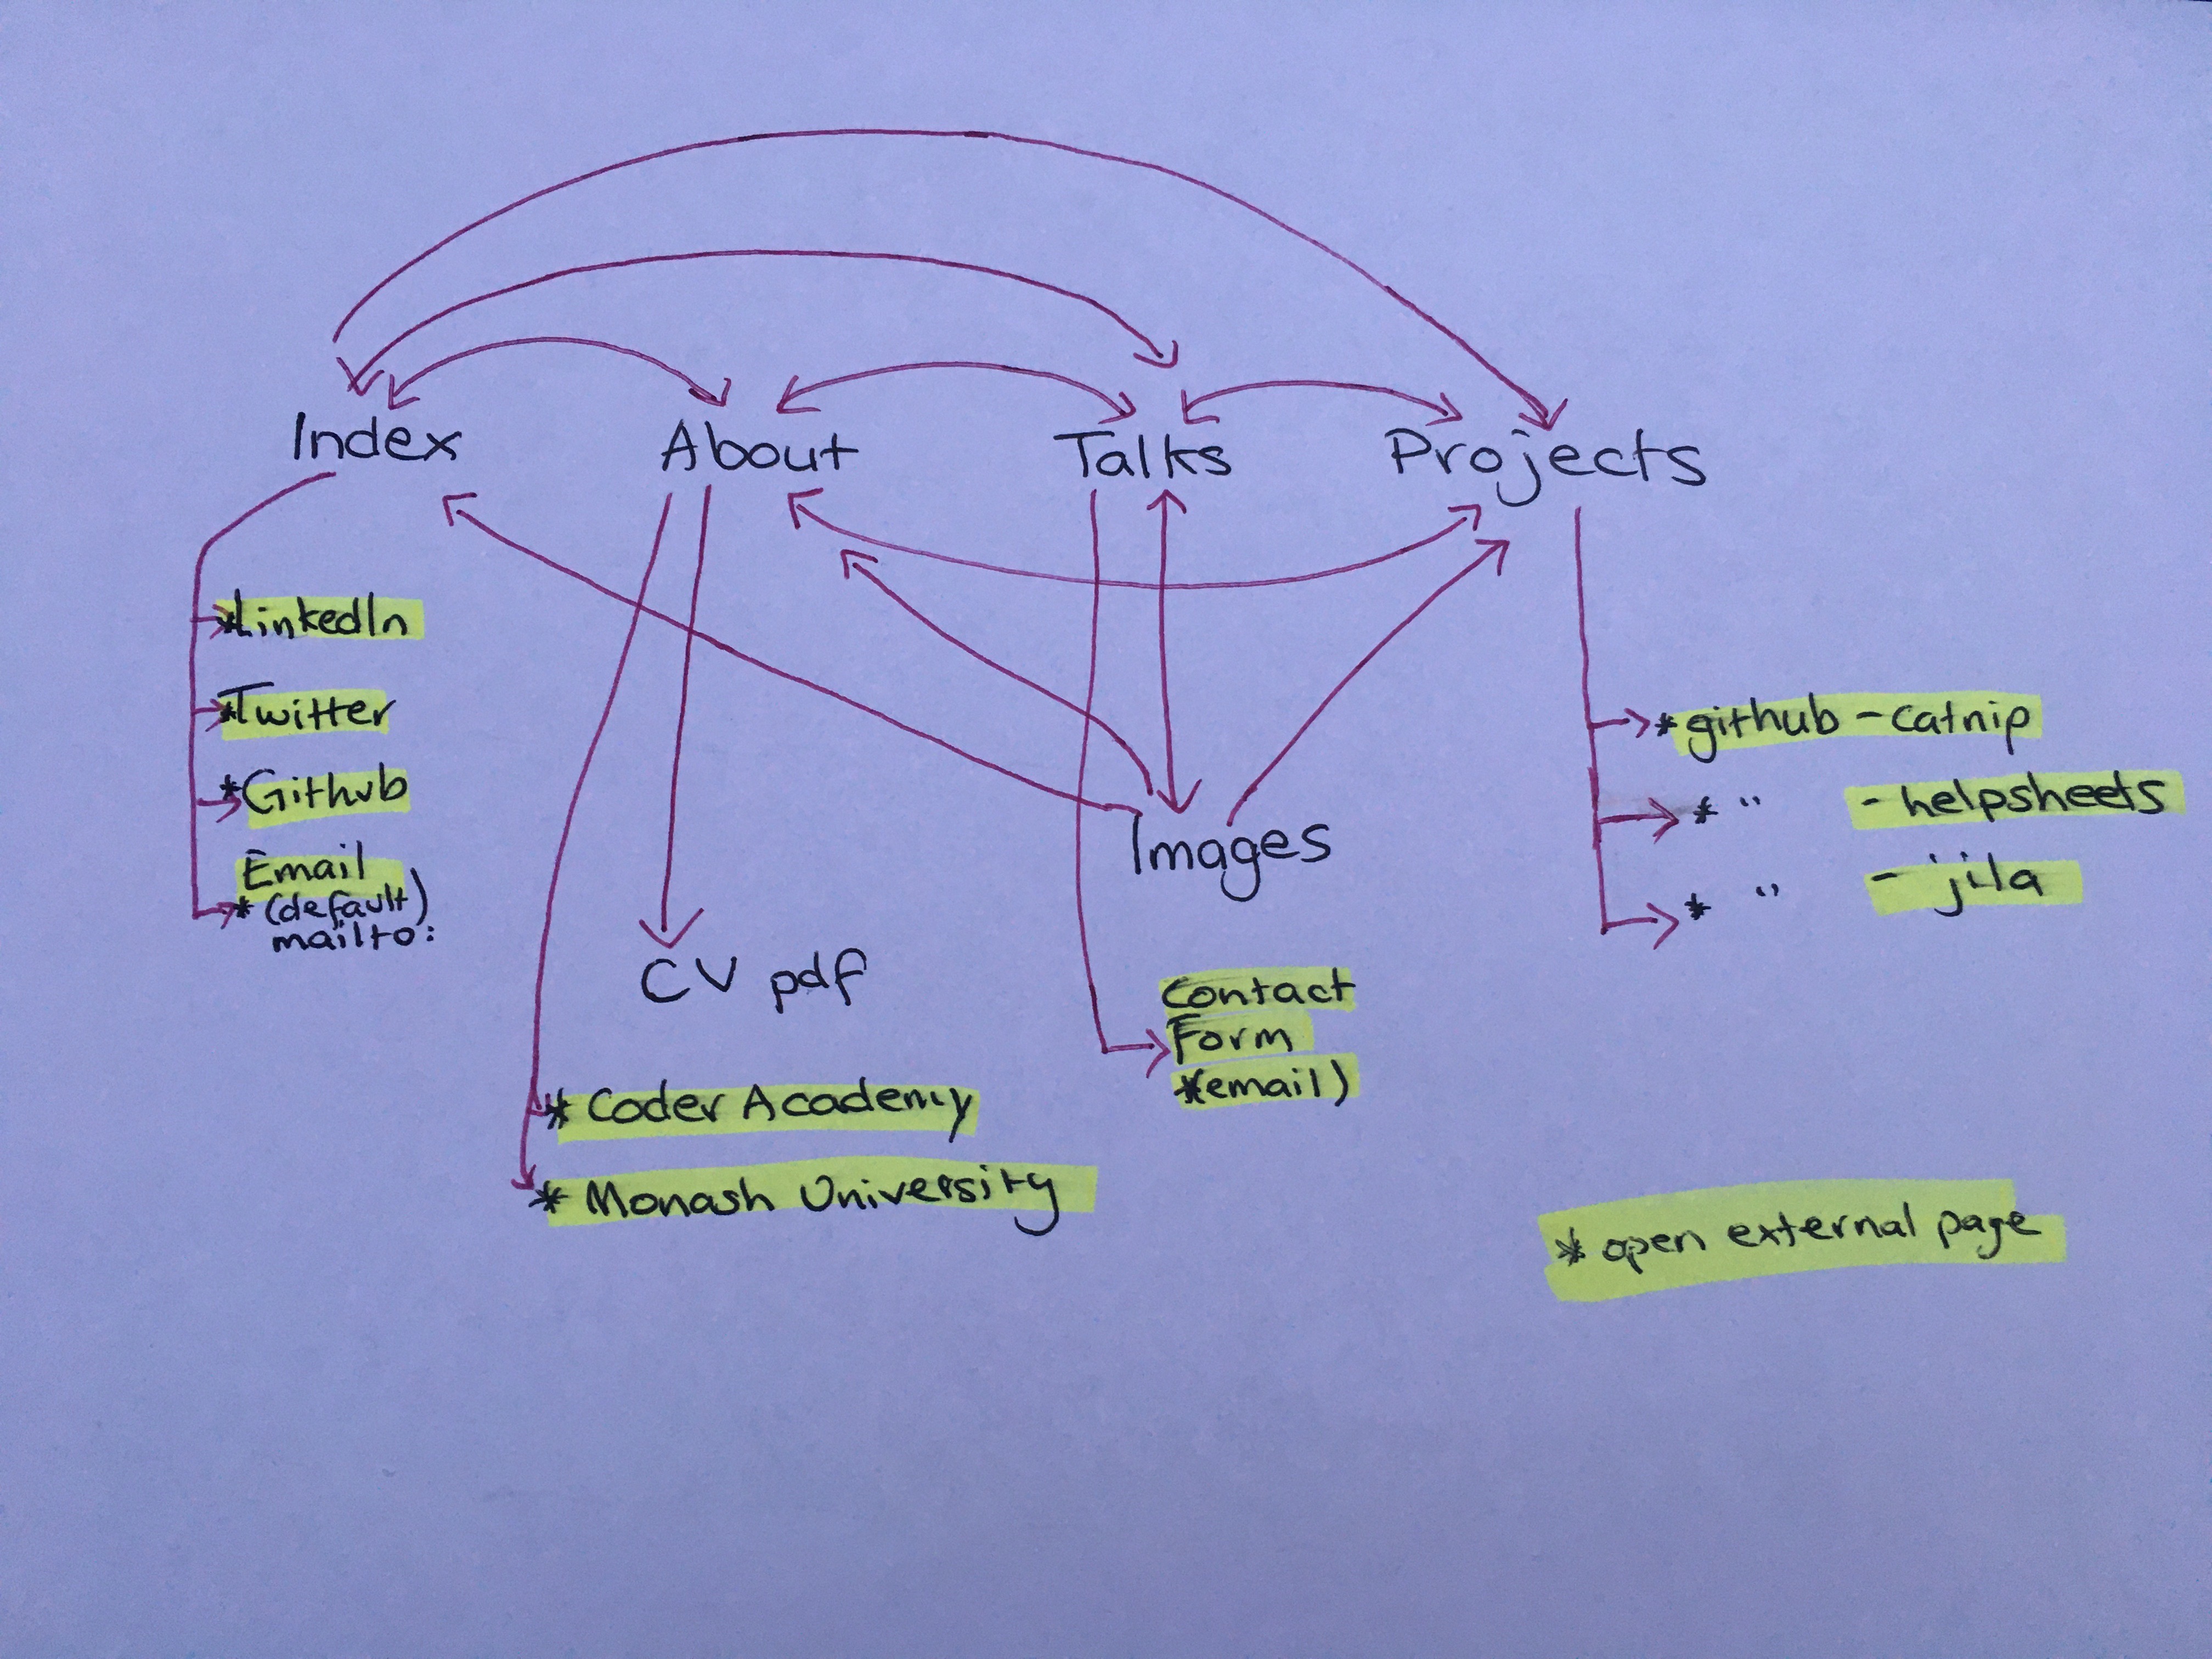 Index About Talks Projects
*LinkedIn
*Twitter
*Github
Email
*(default)
mailto:
CV pdf
* Coder Academy
* Monash University
Images
Contact
Form
*(email)
*github - catnip
* " - helpsheets
* " - jila
* open external page